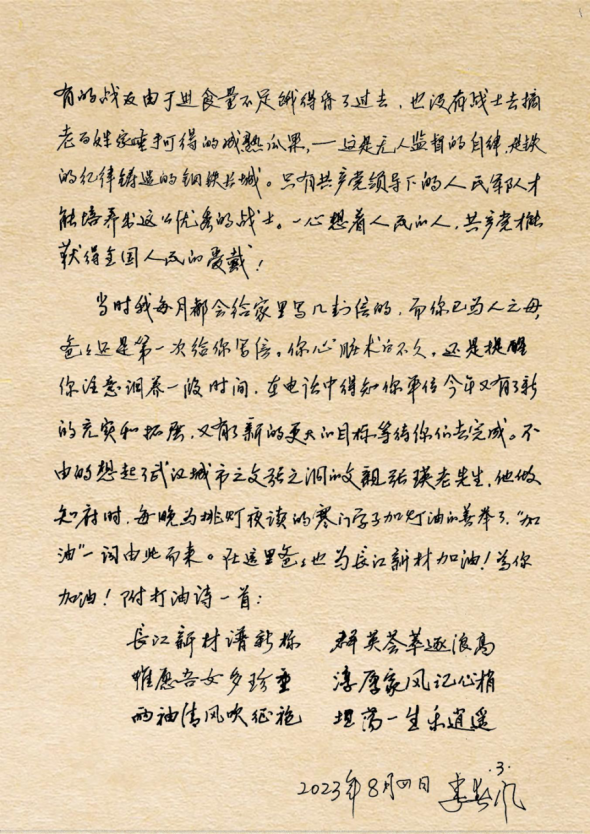 有的战友由于进食量不足饿得昏了过去，也没有战士去摘
老百姓家唾手可得的成熟瓜果，一这是无人监督的自律，是铁
的纪律铸造的钢铁长城。只有共产党领导下的人民军队才
能培养出这么优秀的战士。一心想着人民的人，共产党才能
获得全国人民的爱戴！
当时我每月都会给家里写几封信的，而你已为人之母，
爸爸还是第一次给你写信。你心脏术后不久，还是提醒
你注意调养一段时间，在电话中得知你单位今年又有了新
的充实和拓展，又有了新的更大的目标等待你们去完成。不
由的想起了武汉城市之父张之洞的父亲张瑛老先生，他做
知府时，每晚为挑灯夜读的寒门学子加灯油的善举了，“加
油”一词由此而来。在这里爸爸也为长江新材加油！为你
加油！附打油诗一首：
長江新材谱新标 群英荟萃逐浪高
惟愿吾女多珍重 淳厚家风记心梢
两袖清风吹征袍 坦荡一生乐逍遥
2023年8月四日 李
·3·